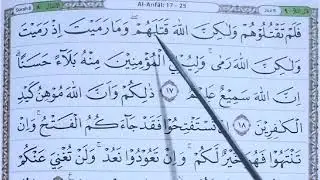 Surah 8 Al-Anfāl: 17 - 25
فَلَمْ تَقْتُلُوْهُمْ وَلٰكِنَّ اللّٰهَ قَتَلَهُمْ ۖ وَمَا رَمَيْتَ اِذْ رَمَيْتَ
وَلٰكِنَّ اللّٰهَ رَمٰى ۚ وَلِيُبْلِيَ الْمُؤْمِنِيْنَ مِنْهُ بَلَاۤءً حَسَنًا ۗ
اِنَّ اللّٰهَ سَمِيْعٌ عَلِيْمٌ ﴿١٧﴾ ذٰلِكُمْ وَاَنَّ اللّٰهَ مُوْهِنُ كَيْدِ
الْكٰفِرِيْنَ ﴿١٨﴾ اِنْ تَسْتَفْتِحُوْا فَقَدْ جَاۤءَكُمُ الْفَتْحُ ۚ وَاِنْ
تَنْتَهُوْا فَهُوَ خَيْرٌ لَّكُمْ ۚ وَاِنْ تَعُوْدُوْا نَعُدْ ۚ وَلَنْ تُغْنِيَ عَنْكُمْ